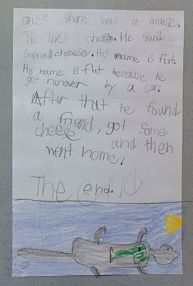 once there was a mouse.
He likes cheese. He found
some cheese. His name is flat.
His name is flat because he
got runover by a car.
After that he found
a friend, got some
cheese and then
went home.
The end.